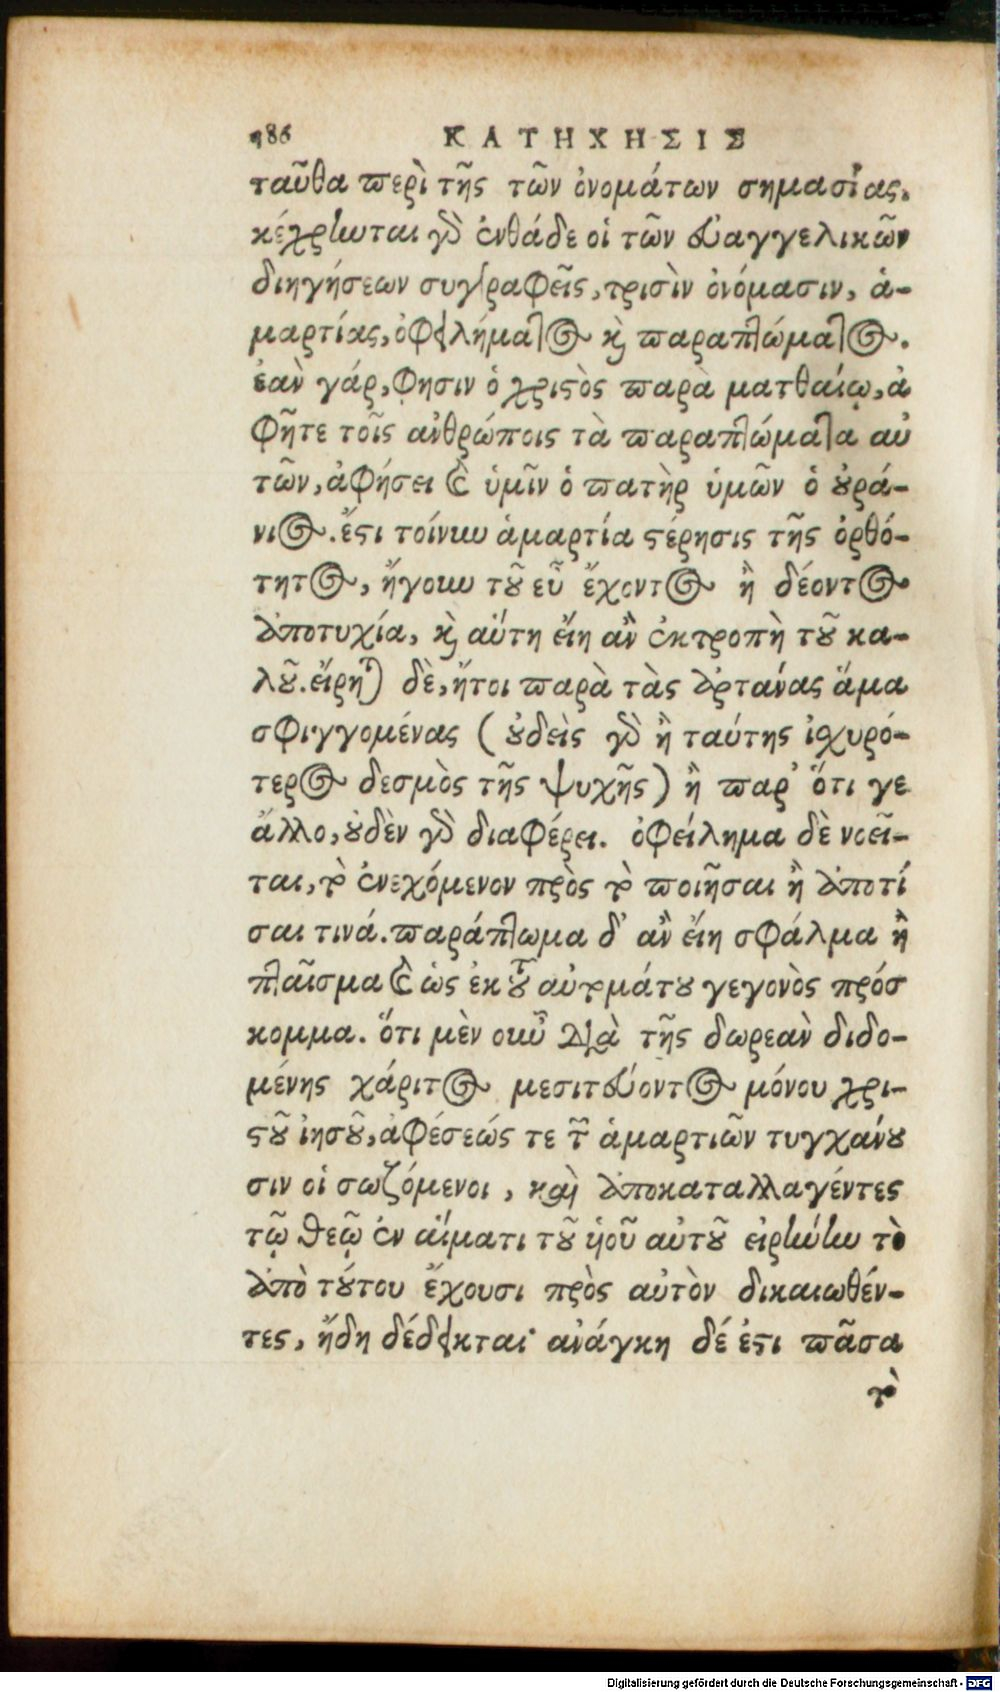 186 ΚΑΤΗΧΗΣΙΣ
ταῦθα περὶ τῆς τῶν ὀνομάτων σημασίας.
κέχρηνται γὰρ ἐνθάδε οἱ τῶν εὐαγγελικῶν
διηγήσεων συγγραφεῖς, τρισὶν ὀνόμασιν, ἁ-
μαρτίας, ὀφειλήματος καὶ παραπτώματος.
ἐὰν γάρ, φησιν ὁ χριστὸς παρὰ ματθαίῳ, ἀ
φῆτε τοῖς ἀνθρώποις τὰ παραπτώματα αὐ
τῶν, ἀφήσει καὶ ὑμῖν ὁ πατὴρ ὑμῶν ὁ οὐρά-
νιος. ἔστι τοίνυν ἁμαρτία στέρησις τῆς ὀρθό-
τητος, ἤγουν τοῦ εὖ ἔχοντος ἢ δέοντος
ἀποτυχία, καὶ αὕτη εἴη ἂν ἐκτροπὴ τοῦ κα-
λοῦ. εἴρηται δὲ, ἤτοι παρὰ τὰς ἀρτάνας ἅμα
σφιγγομένας (οὐδεὶς γὰρ ἢ ταύτης ἰσχυρό-
τερος δεσμὸς τῆς ψυχῆς) ἢ παρ’ ὅτι γε
ἄλλο, οὐδὲν γὰρ διαφέρει. ὀφείλημα δὲ νοεῖ-
ται, τὸ ἐνεχόμενον πρὸς τὸ ποιῆσαι ἢ ἀποτί
σαι τινά. παράπτωμα δ’ ἂν εἴη σφάλμα ἢ
πταῖσμα καὶ ὡς ἐκ τοῦ αὐτομάτου γεγονὸς πρόσ
κομμα. ὅτι μὲν οὖν διὰ τῆς δωρεὰν διδο-
μένης χάριτος μεσιτεύοντος μόνου χρι-
στοῦ ἰησοῦ, ἀφέσεώς τε τῶν ἁμαρτιῶν τυγχάνου
σιν οἱ σωζόμενοι, καὶ ἀποκαταλλαγέντες
τῷ θεῷ ἐν αἵματι τοῦ ὑιοῦ αὐτοῦ εἰρήνην τὸ
ἀπὸ τούτου ἔχουσι πρὸς αὐτὸν δικαιωθέν-
τες, ἤδη δέδεικται· ἀνάγκη δέ ἐστι πᾶσα
τὸ
Digitalisierung gefördert durch die Deutsche Forschungsgemeinschaft - DFG